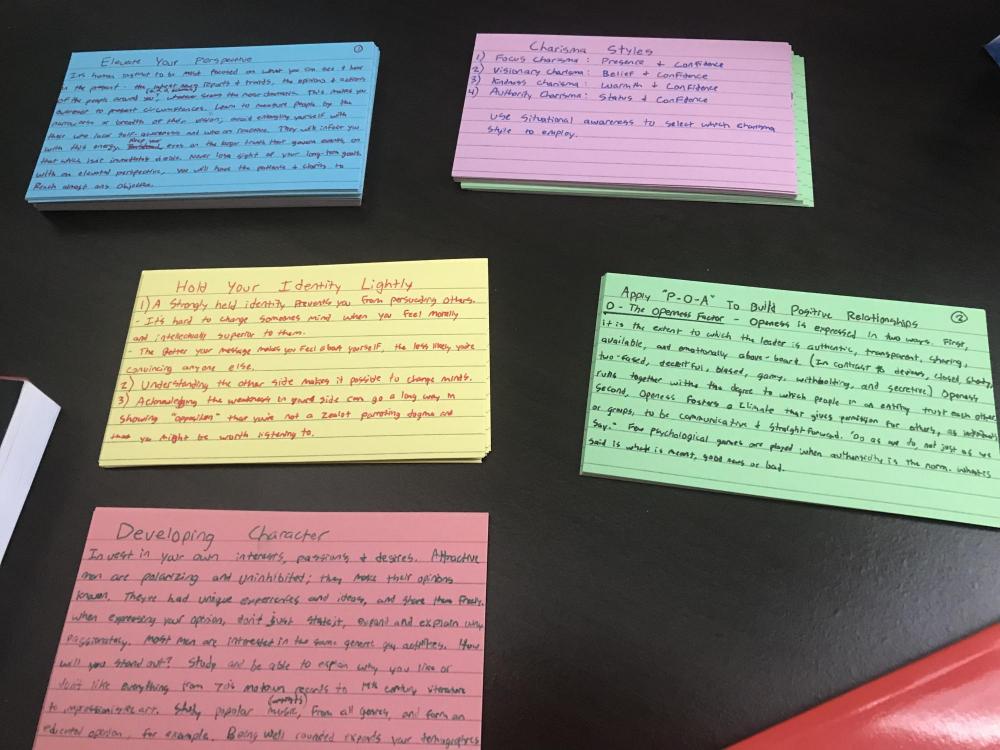 Elevate Your Perspective
①
It's human instinct to be most focused on what you can see & hear
in the present - the latest news reports & trends, the opinions & actions
of the people around you, whatever seems the most dramatic. This makes you
to present circumstances. Learn to measure people by the
narrowness or breadth of their vision; avoid entangling yourself with
those who lack self-awareness and who are reactive. They will infect you
with this energy. Keep your eyes on the larger truth that govern events, on
that which isn't immediately visible. Never lose sight of your long-term goals.
With an elevated perspective, you will have the patience & clarity to
Reach almost any objective.
Charisma Styles
1) Focus Charisma: Presence & Confidence
2) Visionary Charisma: Belief & Confidence
3) Kindness Charisma: Warmth & Confidence
4) Authority Charisma: Status & Confidence
Use situational awareness to select which charisma
style to employ.
Hold Your Identity Lightly
1) A Strongly held identity prevents you from persuading others.
- It's hard to change someones mind when you feel morally
and intellectually superior to them.
- The Better your message makes you feel about yourself, the less likely you're
convincing anyone else.
2) Understanding the other side makes it possible to change minds.
3) Acknowledging the weakness in your side can go a long way in
showing "opposition" that you're not a zealot parroting dogma and
that you might be worth listening to.
Apply "P-O-A" To Build Positive Relationships
②
O - The Openness Factor - Openess is expressed in two ways. First,
it is the extent to which the leader is authentic, transparent, sharing,
available, and emotionally above-board. (In contrast to devious, closed, shady,
two-faced, deceitful, biased, gamy, withholding, and secretive.) Openess
runs together with the degree to which people in an entity trust each other.
Second, Openess Fosters a climate that gives permission for others, as individuals
or groups, to be communicative & straight-forward. "Do as we do, not just as we
say." Few psychological games are played when authenticity is the norm. What is
said is what is meant, good news or bad.
Developing Character
Invest in your own interests, passions, & desires. Attractive
men are polarizing and uninhibited; they make their opinions
known. They've had unique experiences and ideas, and share them freely.
When expressing your opinion, don't just state it, expand and explain why
passionately. Most men are interested in the same generic guy activities. How
will you stand out? Study and be able to explain why you like or
don't like everything from 70's motown records to 19th century literature
to impressionistic art. Study popular music, (artists) from all genres, and form an
educated opinion, for example. Being well rounded expands your demographics